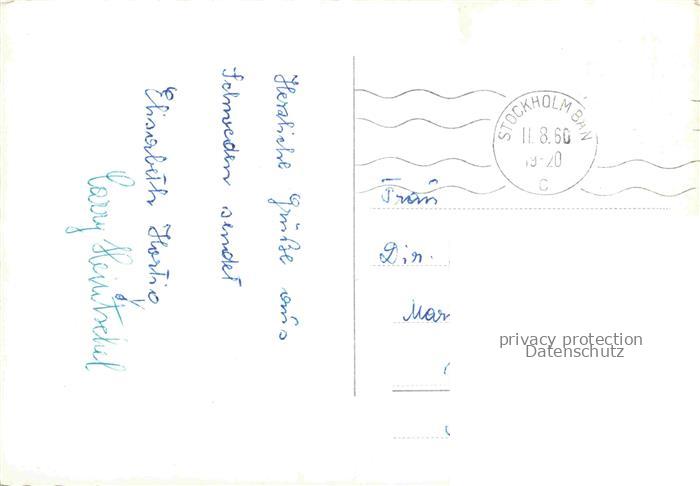 Herzliche Grüße aus
Schweden sendet
Elisabeth
STOCKHOLM BAN
11.8.60
19-20
C
Frau
Dir.
Mar
privacy protection
Datenschutz